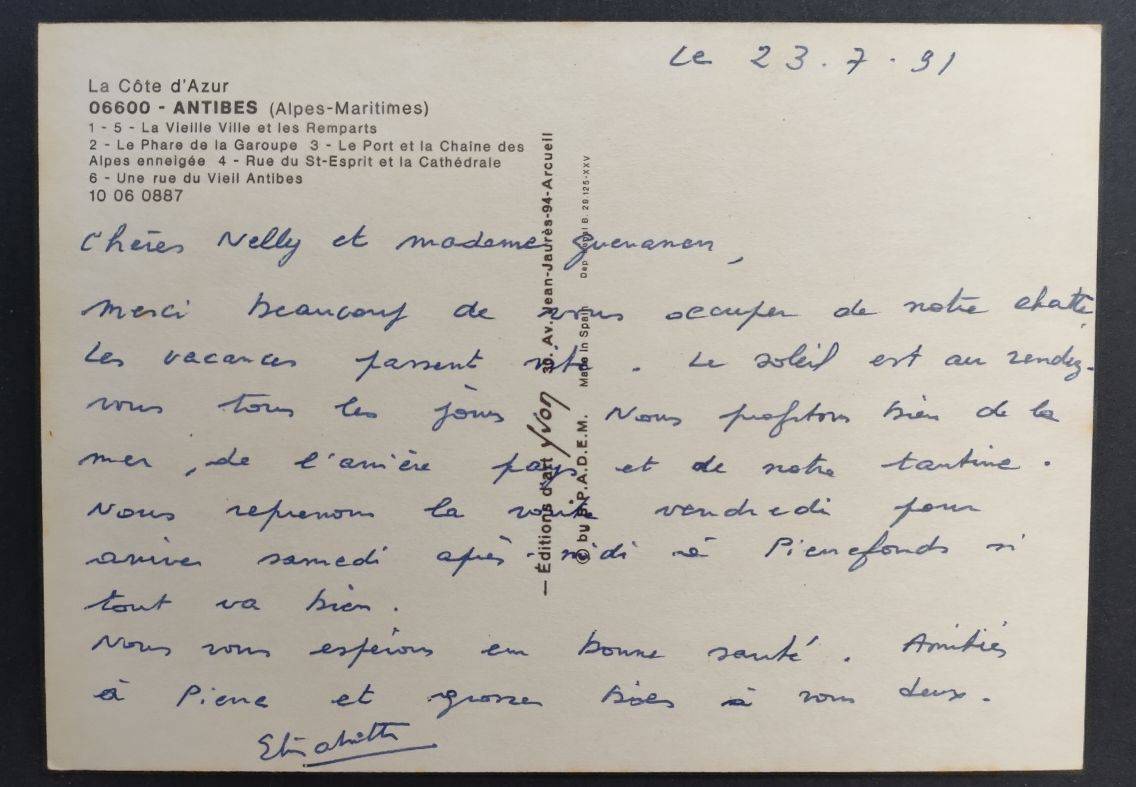 Le 23.7.91
La Côte d'Azur
06600 - ANTIBES (Alpes-Maritimes)
1 - 5 - La Vieille Ville et les Remparts
2 - Le Phare de la Garoupe 3 - Le Port et la Chaîne des
Alpes enneigée 4 - Rue du St-Esprit et la Cathédrale
6 - Une rue du Vieil Antibes
10 06 0887
Chères Nelly et madame
Merci beaucoup de vous occuper de notre chatte
Les vacances passent vite. Le soleil est au rendez-
vous tous les jours. Nous profitons bien de la
mer, de l'arrière pays et de notre tantine.
Nous reprenons la route vendredi pour
arriver samedi après-midi à Pierrefonds si
tout va bien.
Nous vous espérons en bonne santé. Amitiés
à Pierre et grosses bises à vous deux.
Elisabeth
— Éditions d'art Yvon 30, Av. Jean-Jaurès-94-Arcueil
© bu S.P.A.D.E.M. Made in Spain Dep. Legal B. 29.125-XXV